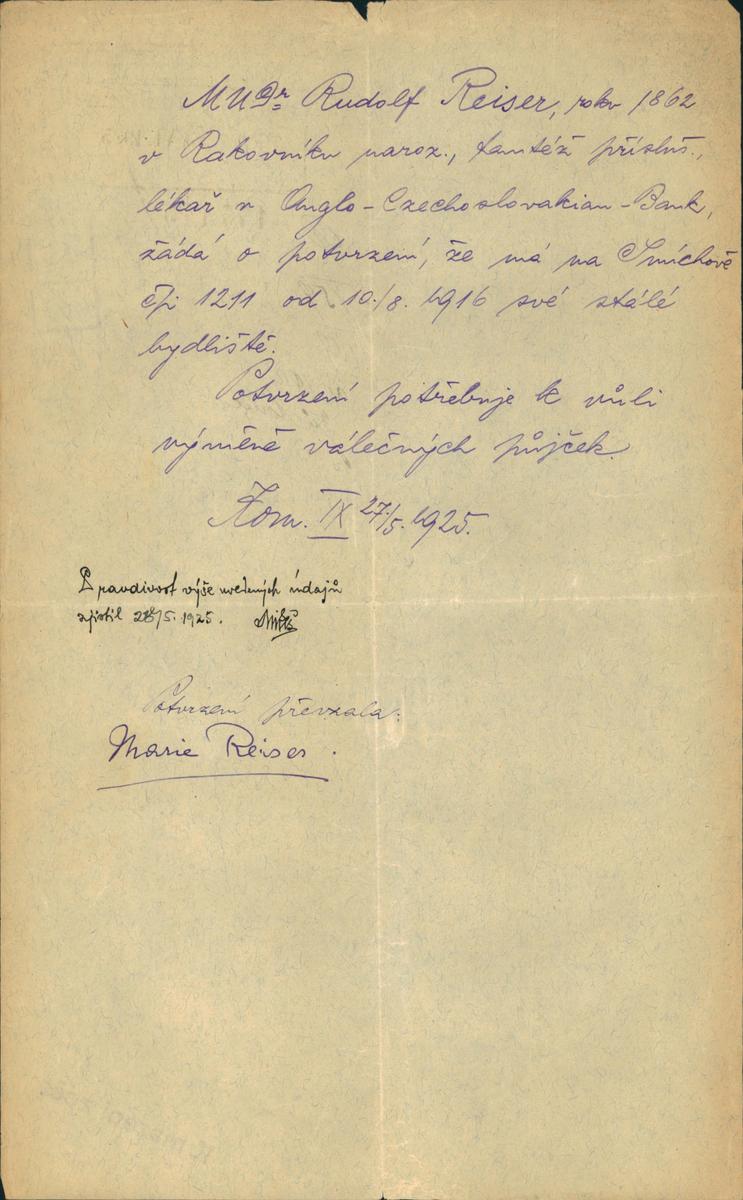 MUDr Rudolf Reiser, roku 1862
v Rakovníku naroz., tamtéž přísluš.,
lékař v Anglo-Czechoslovakian-Bank,
žádá o potvrzení, že má na Smíchově
čp. 1211 od 10./8. 1916 své stálé
bydliště.
Potvrzení potřebuje k vůli
výměně válečných půjček.
Kom. IX 27./5. 1925.
Pravdivost výše uvedených údajů
zjistil 28/5. 1925.
Potvrzení převzala:
Marie Reiser.